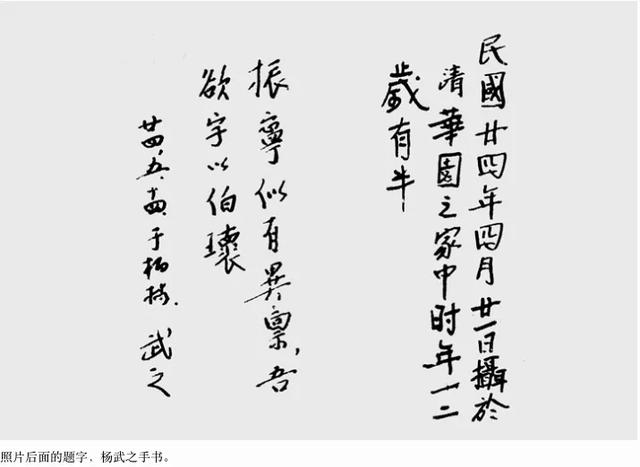 民國廿四年四月廿一日攝於
清華園之家中时年十二
歲有半
振寧似有異稟，吾
欲字以伯瓌
廿四、五、十四、于柏林. 武之
照片后面的题字，杨武之手书。